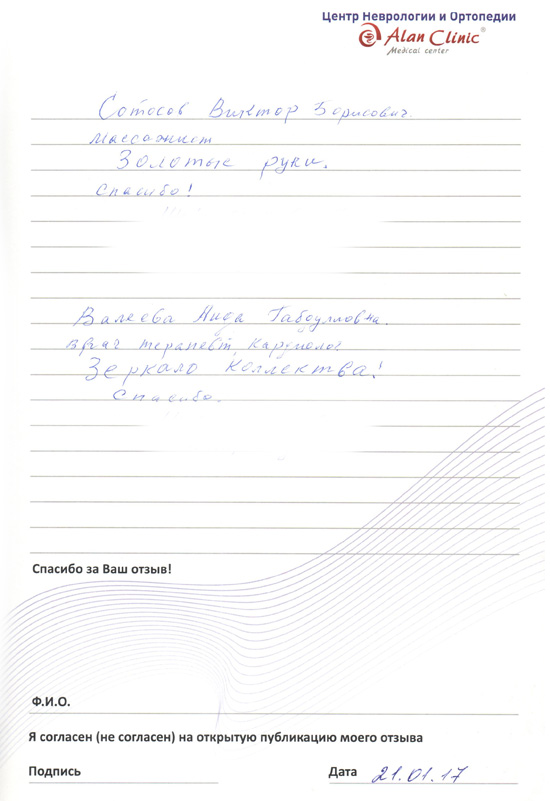 Центр Неврологии и Ортопедии
Alan Clinic®
Medical center
Сотосов Виктор Борисович.
массажист
Золотые руки.
Спасибо!
Валеева Аида Габдулловна.
врач терапевт, кардиолог
Зеркало коллектва!
Спасибо.
Спасибо за Ваш отзыв!
Ф.И.О.
Я согласен (не согласен) на открытую публикацию моего отзыва
Подпись
Дата 21.01.17